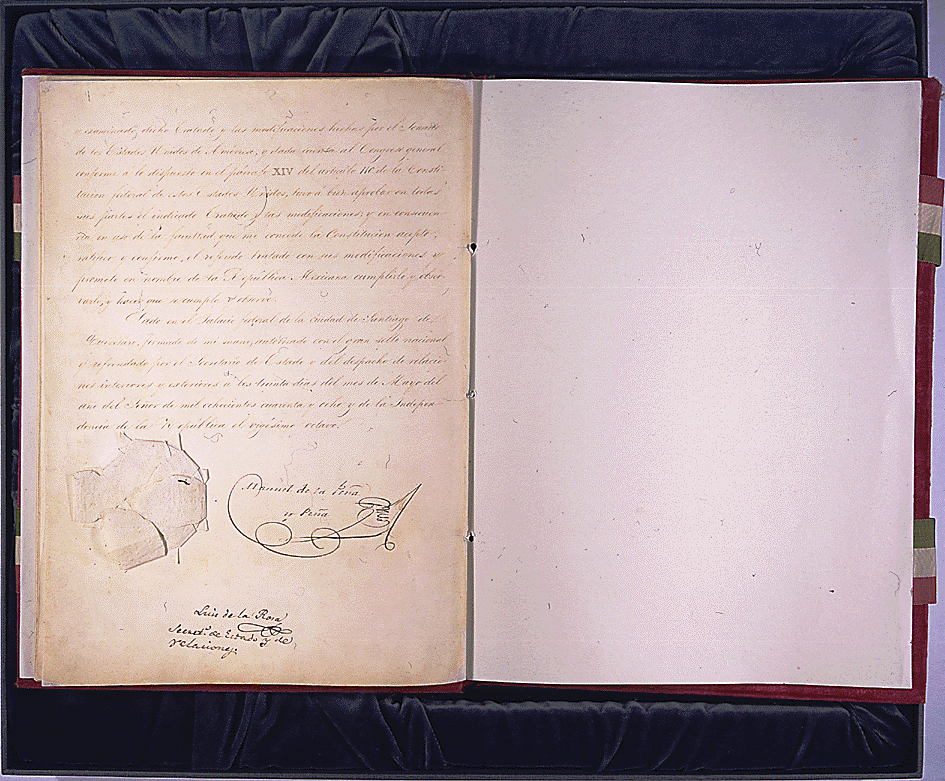 y examinado, dicho Tratado y las modificaciones hechas por el Senado
de los Estados Unidos de América, y dada cuenta al Congreso general
conforme a lo dispuesto en el párrafo XIV del artículo 110 de la Consti-
tucion federal de estos Estados Unidos, tuvo á bien aprobar en todas
sus partes el indicado Tratado y las modificaciones; y en consecuen-
cia en uso de la facultad que me concede la Constitucion acepto,
ratifico y confirmo, el referido tratado con sus modificaciones y
prometo en nombre de la República Mexicana cumplirlo y obser-
varlo, y hacer que se cumpla y observe.
Dado en el Palacio federal de la ciudad de Santiago de
Queretaro, firmado de mi mano, autorizado con el gran sello nacional
y refrendado por el Secretario de Estado y del despacho de relacio-
nes interiores y exteriores á los treinta dias del mes de Mayo del
año del Señor de mil ochocientos cuarenta y ocho y de la Indepen-
dencia de la República el vigésimo octavo.
Manuel de la Peña
y Peña
Luis de la Rosa
Secret.º de Estado y de
relaciones.